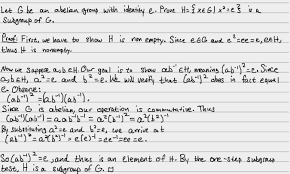 Let G be an abelian group with identity e. Prove H={x∈G | x²=e} is a
subgroup of G.
Proof: First, we have to show H is non empty. Since e∈G and e²=ee=e, e∈H,
thus H is nonempty.
Now we suppose a,b∈H. Our goal is to show ab⁻¹∈H, meaning (ab⁻¹)²=e. Since
a,b∈H, a²=e and b²=e. We will verify that (ab⁻¹)² does in fact equal
e. Observe:
(ab⁻¹)²=(ab⁻¹)(ab⁻¹).
Since G is abelian, our operation is commutative. Thus
(ab⁻¹)(ab⁻¹)=aab⁻¹b⁻¹=a²(b⁻¹)²=a²(b²)⁻¹
By substituting a²=e and b²=e, we arrive at
(ab⁻¹)²=a²(b²)⁻¹=e(e)⁻¹=ee⁻¹=ee=e.
So (ab⁻¹)²=e, and thus is an element of H. By the one-step subgroup
test, H is a subgroup of G. □